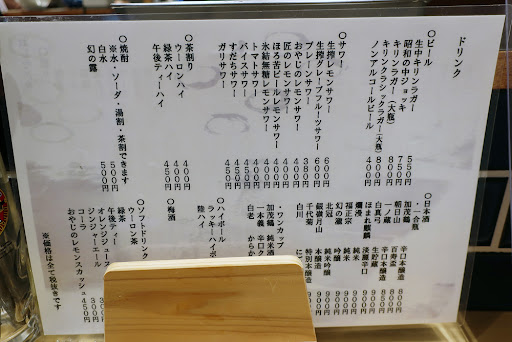 ドリンク
○ビール
生中キリンラガー 550円
昭和の中ジョッキ 750円
キリンラガー(大瓶) 800円
キリンクラシックラガー(大瓶) 800円
ノンアルコールビール 400円
○サワー
生搾レモンサワー 600円
生搾グレープフルーツサワー 600円
プレーンサワー 380円
おやじのレモンサワー 400円
匠のレモンサワー 400円
ほろ苦ビールレモンサワー 400円
氷結無糖レモンサワー 400円
トマトサワー 450円
バイスサワー 450円
すだちサワー 450円
ガリサワー 450円
○茶割り
ウーロンハイ 400円
緑茶ハイ 400円
午後ティーハイ 400円
○焼酎
※水・ソーダ・湯割・茶割できます
白水 500円
幻の露 500円
○日本酒
・一合瓶
加茂鶴 辛口本醸造
朝日山 百寿盃
一ノ蔵 辛口本醸造
白真弓 生貯蔵
ほまれ麒麟 淡麗辛口
爛漫 純米
福正宗 純米
幻の瀧 吟醸
北冠 純米吟醸
銀嶺月山
千代菊
白川
・ワンカップ
加茂鶴 純米
一本義 辛口
白老
○ハイボール
ラッキーハイボ
陸ハイ
○梅酒
○ソフトドリンク
ウーロン茶
緑茶
午後ティー
オレンジジュース
ジンジャエール 300円
コーラ 300円
おやじのレモンスカッシュ 450円
※価格は全て税抜きです